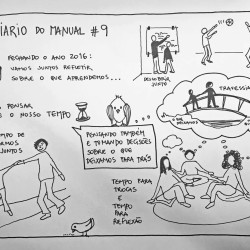 DIÁRIO DO MANUAL #9
FECHANDO O ANO 2016:
VAMOS JUNTOS REFLETIR
SOBRE O QUE APRENDEMOS...
DESCOBRIR
JUNTOS
TRAVESSIA
PENSAR
O NOSSO TEMPO
TEMPO DE
JUNTOS
PENSANDO TAMBÉM
E TOMANDO DECISÕES
SOBRE O QUE
DEIXAMOS PARA TRÁS
TEMPO PARA
TROCAS
E TEMPO
PARA
REFLEXÃO